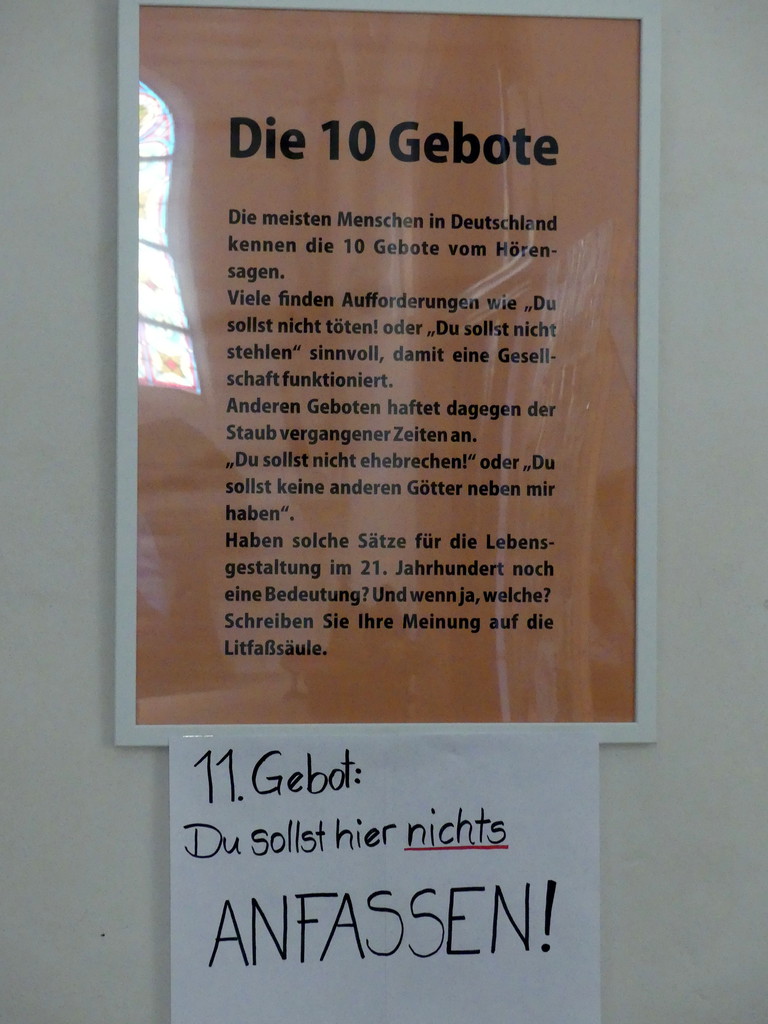 Die 10 Gebote
Die meisten Menschen in Deutschland
kennen die 10 Gebote vom Hören-
sagen.
Viele finden Aufforderungen wie „Du
sollst nicht töten! oder „Du sollst nicht
stehlen“ sinnvoll, damit eine Gesell-
schaft funktioniert.
Anderen Geboten haftet dagegen der
Staub vergangener Zeiten an.
„Du sollst nicht ehebrechen!“ oder „Du
sollst keine anderen Götter neben mir
haben“.
Haben solche Sätze für die Lebens-
gestaltung im 21. Jahrhundert noch
eine Bedeutung? Und wenn ja, welche?
Schreiben Sie Ihre Meinung auf die
Litfaßsäule.
11. Gebot:
Du sollst hier nichts
ANFASSEN!